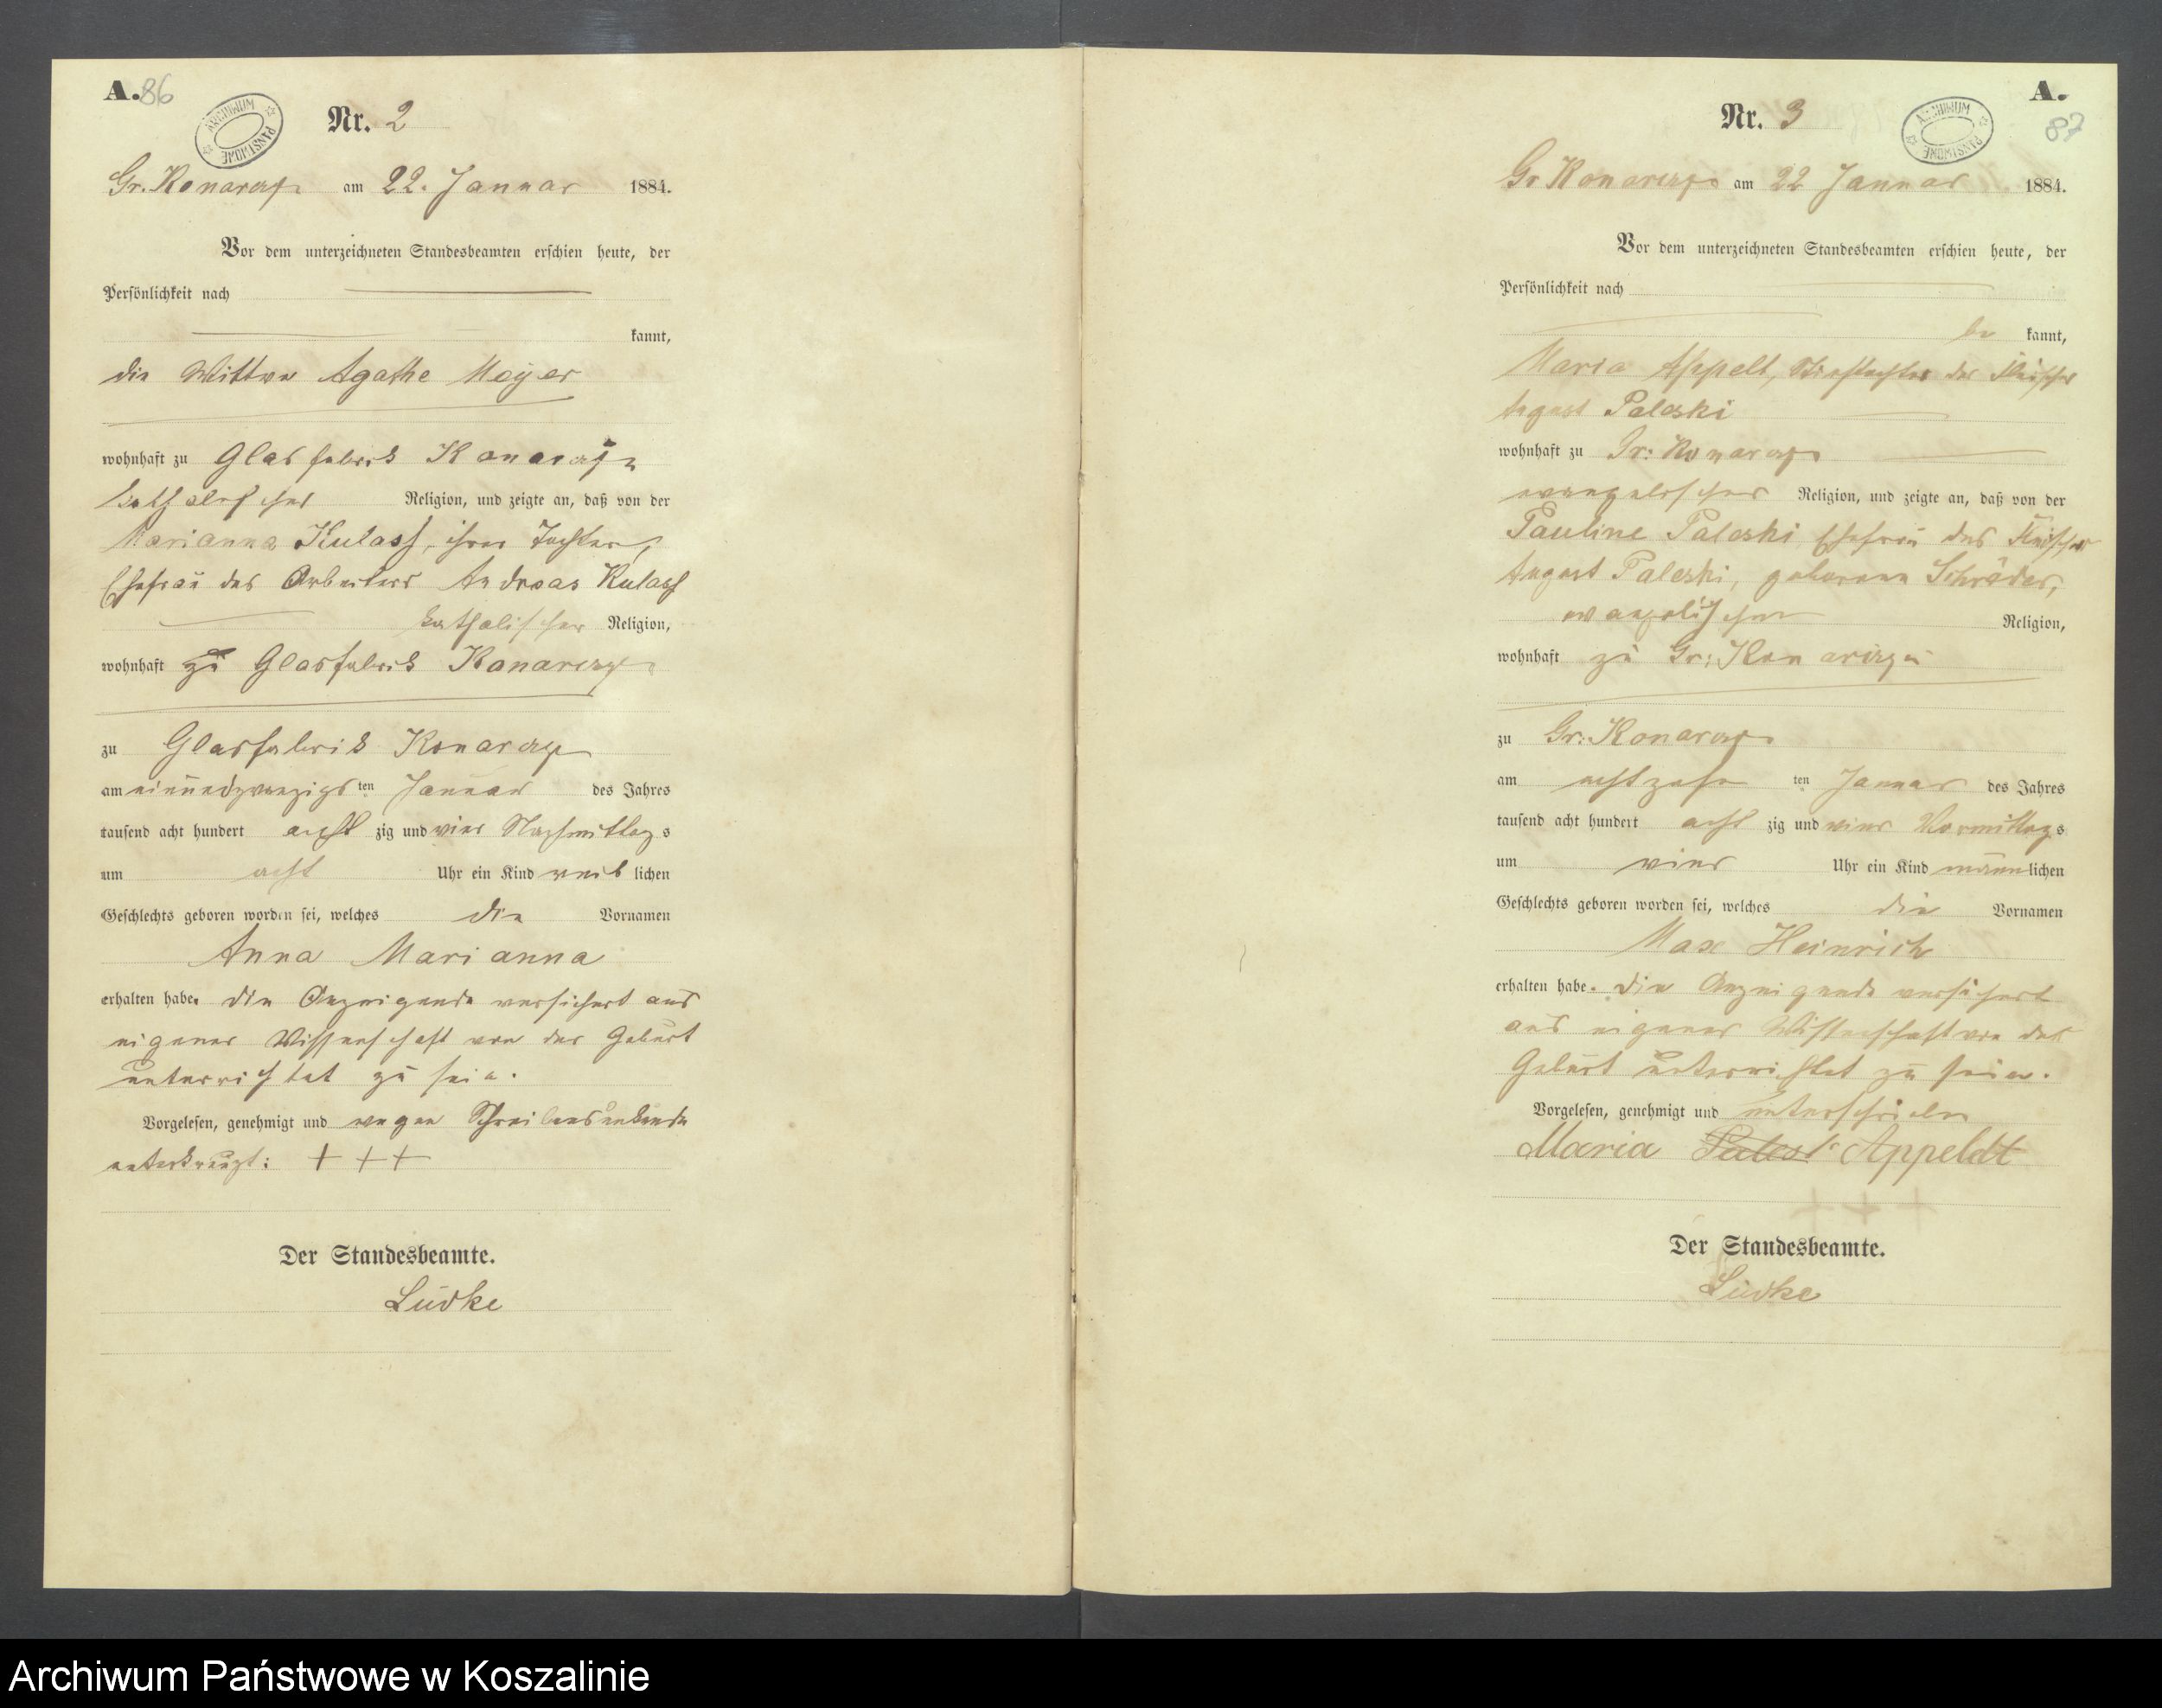 A. 86
ARCHIWUM PAŃSTWOWE
Nr. 2
Gr. Konarczyn am 22. Januar 1884.
Vor dem unterzeichneten Standesbeamten erschien heute, der
Persönlichkeit nach
kannt,
die Wittwe Agathe Meyer
wohnhaft zu Glasfabrik Konarczyn
katholischer Religion, und zeigte an, daß von der
Marianna Kulass, ihrer Tochter,
Ehefrau des Arbeiters Andreas Kulass
katholischer Religion,
wohnhaft zu Glasfabrik Konarczyn
zu Glasfabrik Konarczyn
am einundzwanzigsten Januar des Jahres
tausend acht hundert acht zig und vier Nachmittags
um acht Uhr ein Kind weiblichen
Geschlechts geboren worden sei, welches die Vornamen
Anna Marianna
erhalten habe. Die Anzeigende versichert aus
eigener Wissenschaft von der Geburt
unterrichtet zu sein.
Vorgelesen, genehmigt und wegen Schreibensunkunde
unterkreuzt: + + +
Der Standesbeamte.
Lüdke
A.
87
ARCHIWUM PAŃSTWOWE
Nr. 3
Gr Konarczyn am 22 Januar 1884.
Vor dem unterzeichneten Standesbeamten erschien heute, der
Persönlichkeit nach
be kannt,
Maria Appelt, Stieftochter des
August Paleski
wohnhaft zu Gr: Konarczyn
evangelischer Religion, und zeigte an, daß von der
Pauline Paleski Ehefrau des
August Paleski, geborene Schröder,
evangelischer Religion,
wohnhaft zu Gr: Konarczyn
zu Gr: Konarczyn
am achtzehn ten Januar des Jahres
tausend acht hundert acht zig und vier Vormittags
um vier Uhr ein Kind männlichen
Geschlechts geboren worden sei, welches die Vornamen
Max Heinrich
erhalten habe. Die Anzeigende versichert
aus eigener Wissenschaft von der
Geburt unterrichtet zu sein.
Vorgelesen, genehmigt und unterschrieben
Maria Appeldt
Der Standesbeamte.
Lüdke
Archiwum Państwowe w Koszalinie